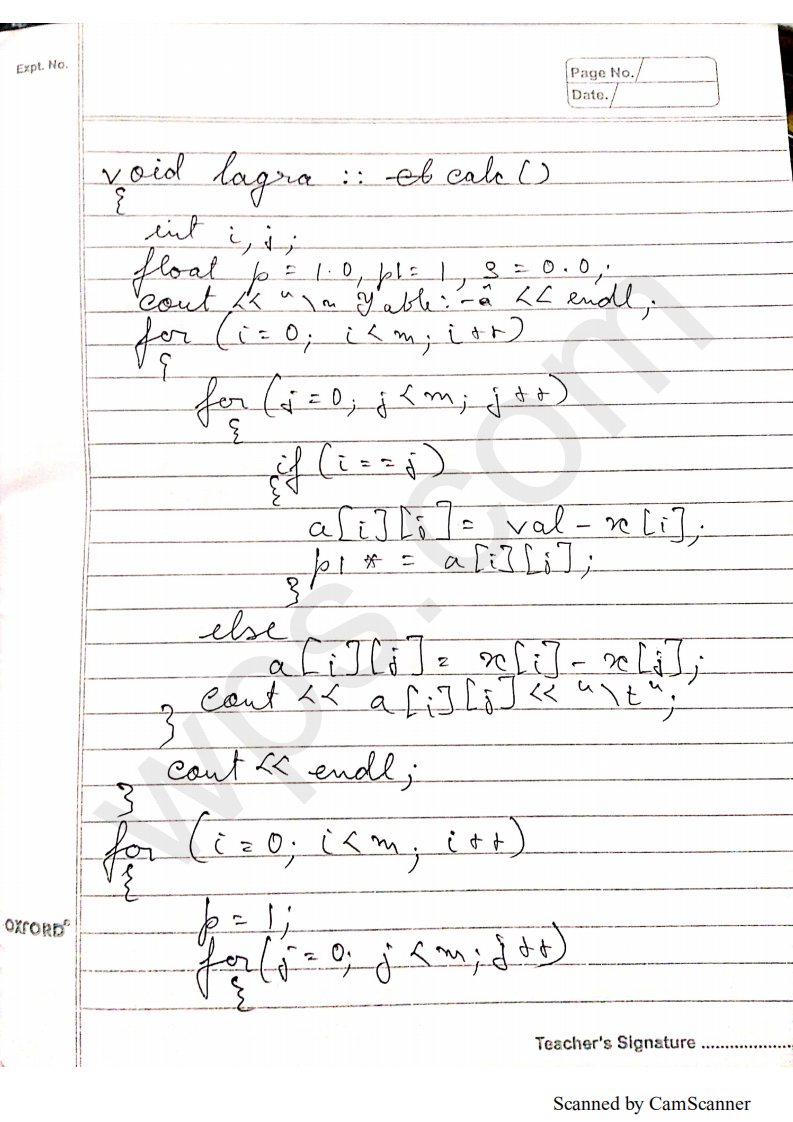 Expt. No.
Page No.
Date.
void lagra :: calc()
{
int i, j;
float p = 1.0, p1 = 1, s = 0.0;
cout << "\n Table:-" << endl;
for (i = 0; i < n; i++)
{
for (j = 0; j < n; j++)
{
if (i == j)
{
a[i][j] = val - x[i];
p1 * = a[i][j];
}
else
a[i][j] = x[i] - x[j];
cout << a[i][j] << "\t";
}
cout << endl;
}
for (i = 0; i < n; i++)
{
p = 1;
for (j = 0; j < n; j++)
{
OXFORD
Teacher's Signature ....................
Scanned by CamScanner
wps.com